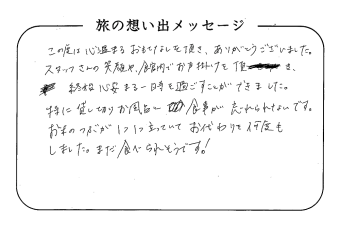 旅の想い出メッセージ
この度は心温まるおもてなしを頂き、ありがとうございました。
スタッフさんの笑顔や、館内でお声掛けを頂き、
終始心安まる一時を過ごすことができました。
特に貸し切りお風呂と食事が忘れられないです。
お米のつぶが1つ1つ立っていてお代わりを何度も
しました。まだ食べられそうです!